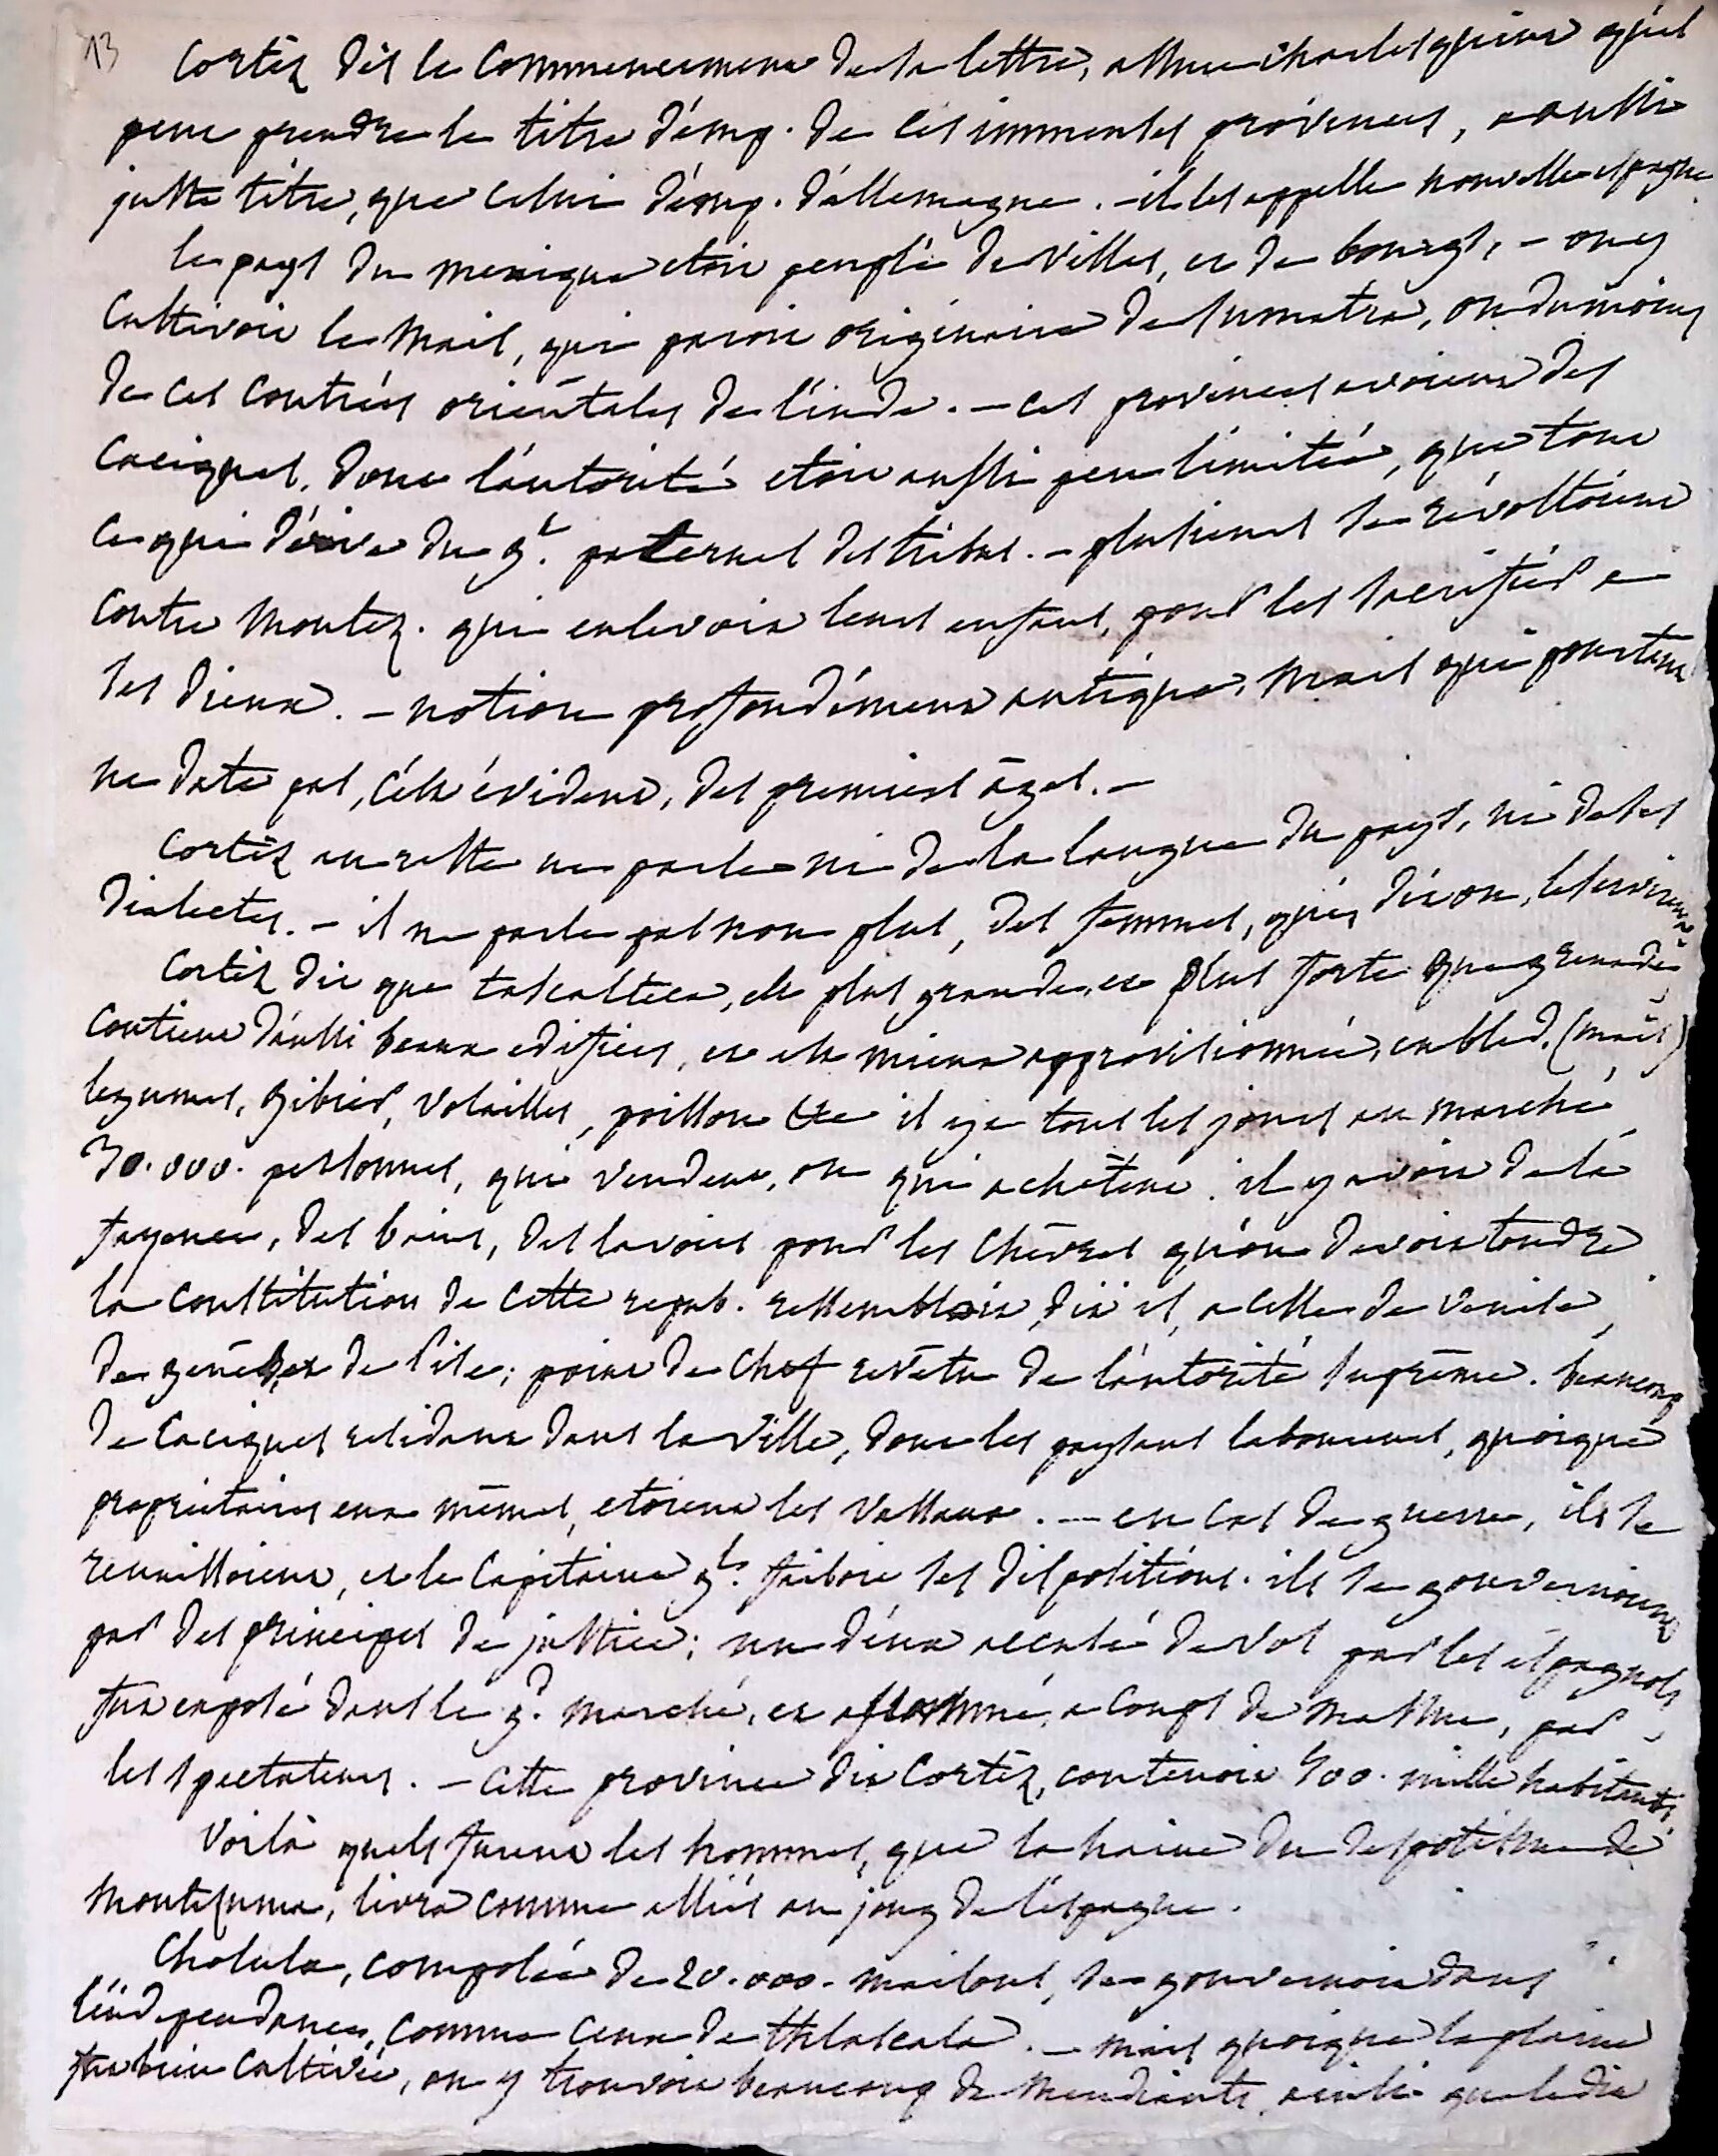 13
Cortéz dès le commencement de sa lettre, assure charles quint qu'il
peut prendre le titre d'emp. de ces immenses provinces, a aussi
juste titre, que celui d'emp. d'allemagne. - il les appelle nouvelle espagne.
le pays du mexique etoit peuplé de villes, et de bourgs, - on y
cultivoit le maïs, qui paroit originaire de sumatra, ou du moins
de ces contrées orientales de l'inde. - ces provinces avoient des
caciques, dont l'autorité etoit aussi peu limitée, que tout
ce qui dérive du gt. paternel des tribus. - plusieurs se révoltoient
contre Montez. qui enlevoit leurs enfans, pour les sacrifier a
ses dieux. - notion profondément antique, mais qui pourtant
ne date pas, c'est évident, des premiers âges. -
Cortéz au reste ne parle ni de la langue du pays, ni de ses
dialectes. - il ne parle pas non plus, des femmes, qui, dit on, le servirent.
Cortéz dit que tascalteca, est plus grande, et plus forte que grenade,
contient d'aussi beaux edifices, et est mieux approvisionnée, en bled, (maïs)
legumes, gibier, volailles, poisson &c il y a tous les jours au marché
30.000. personnes, qui vendent, ou qui achètent. il y avoit de la
fayence, des bains, des lavoirs pour les chèvres qu'on devoit tondre
la constitution de cette repub. ressembloit, dit il, a celle de venise,
de gênes, et de pise; point de chef revêtu de l'autorité suprême. beaucoup
de caciques residant dans la ville, dont les paysans laboureurs, quoique
proprietaires eux mêmes, etoient les vassaux. - en cas de guerre, ils se
reunissoient, et le capitaine gl. faisoit ses dispositions. ils se gouvernoient
par des principes de justice; un d'eux accusé de vol par les espagnols
fut exposé dans le gd. marché, et assommé, a coups de massue, par
les spectateurs. - cette province dit Cortéz, contenoit 500. mille habitants.
Voilà quels furent les hommes, que la haine du despotisme de
Montezuma, livra comme alliés au joug de l'espagne.
Cholula, composée de 20.000. maisons, se gouvernoit dans
l'indépendance, comme ceux de thlascala. - mais quoique la plaine
fut bien cultivée, on y trouvoit beaucoup de mendiants, ainsi que le dit